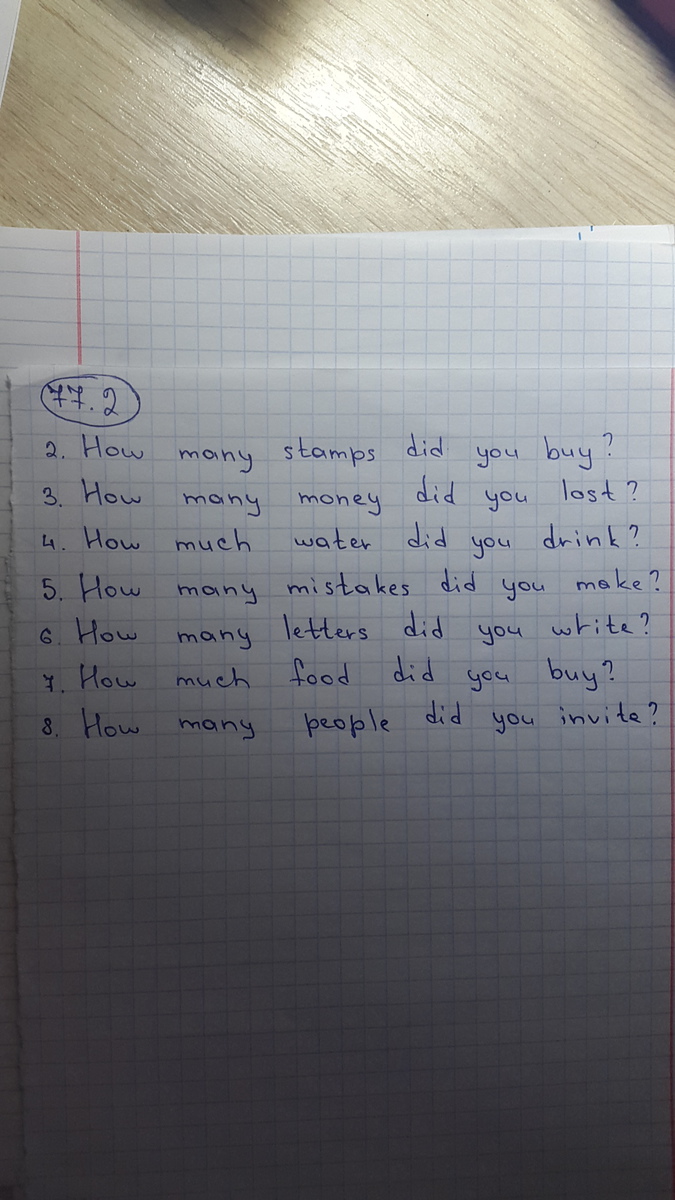 77.2
2. How many stamps did you buy?
3. How many money did you lost?
4. How much water did you drink?
5. How many mistakes did you make?
6. How many letters did you write?
7. How much food did you buy?
8. How many people did you invite?